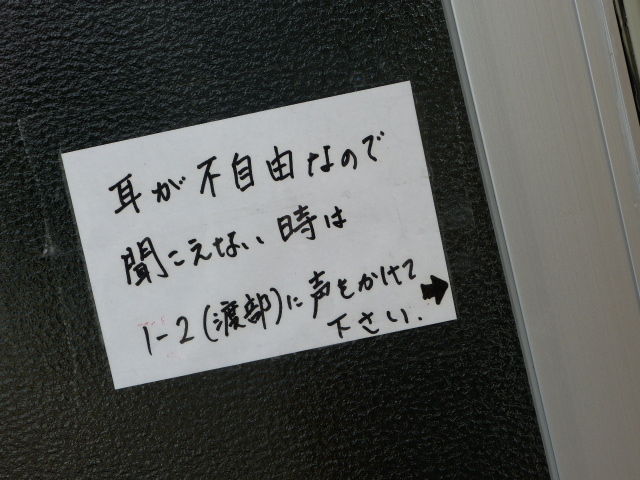 耳が不自由なので
聞こえない時は
1-2(渡部)に声をかけて
下さい.